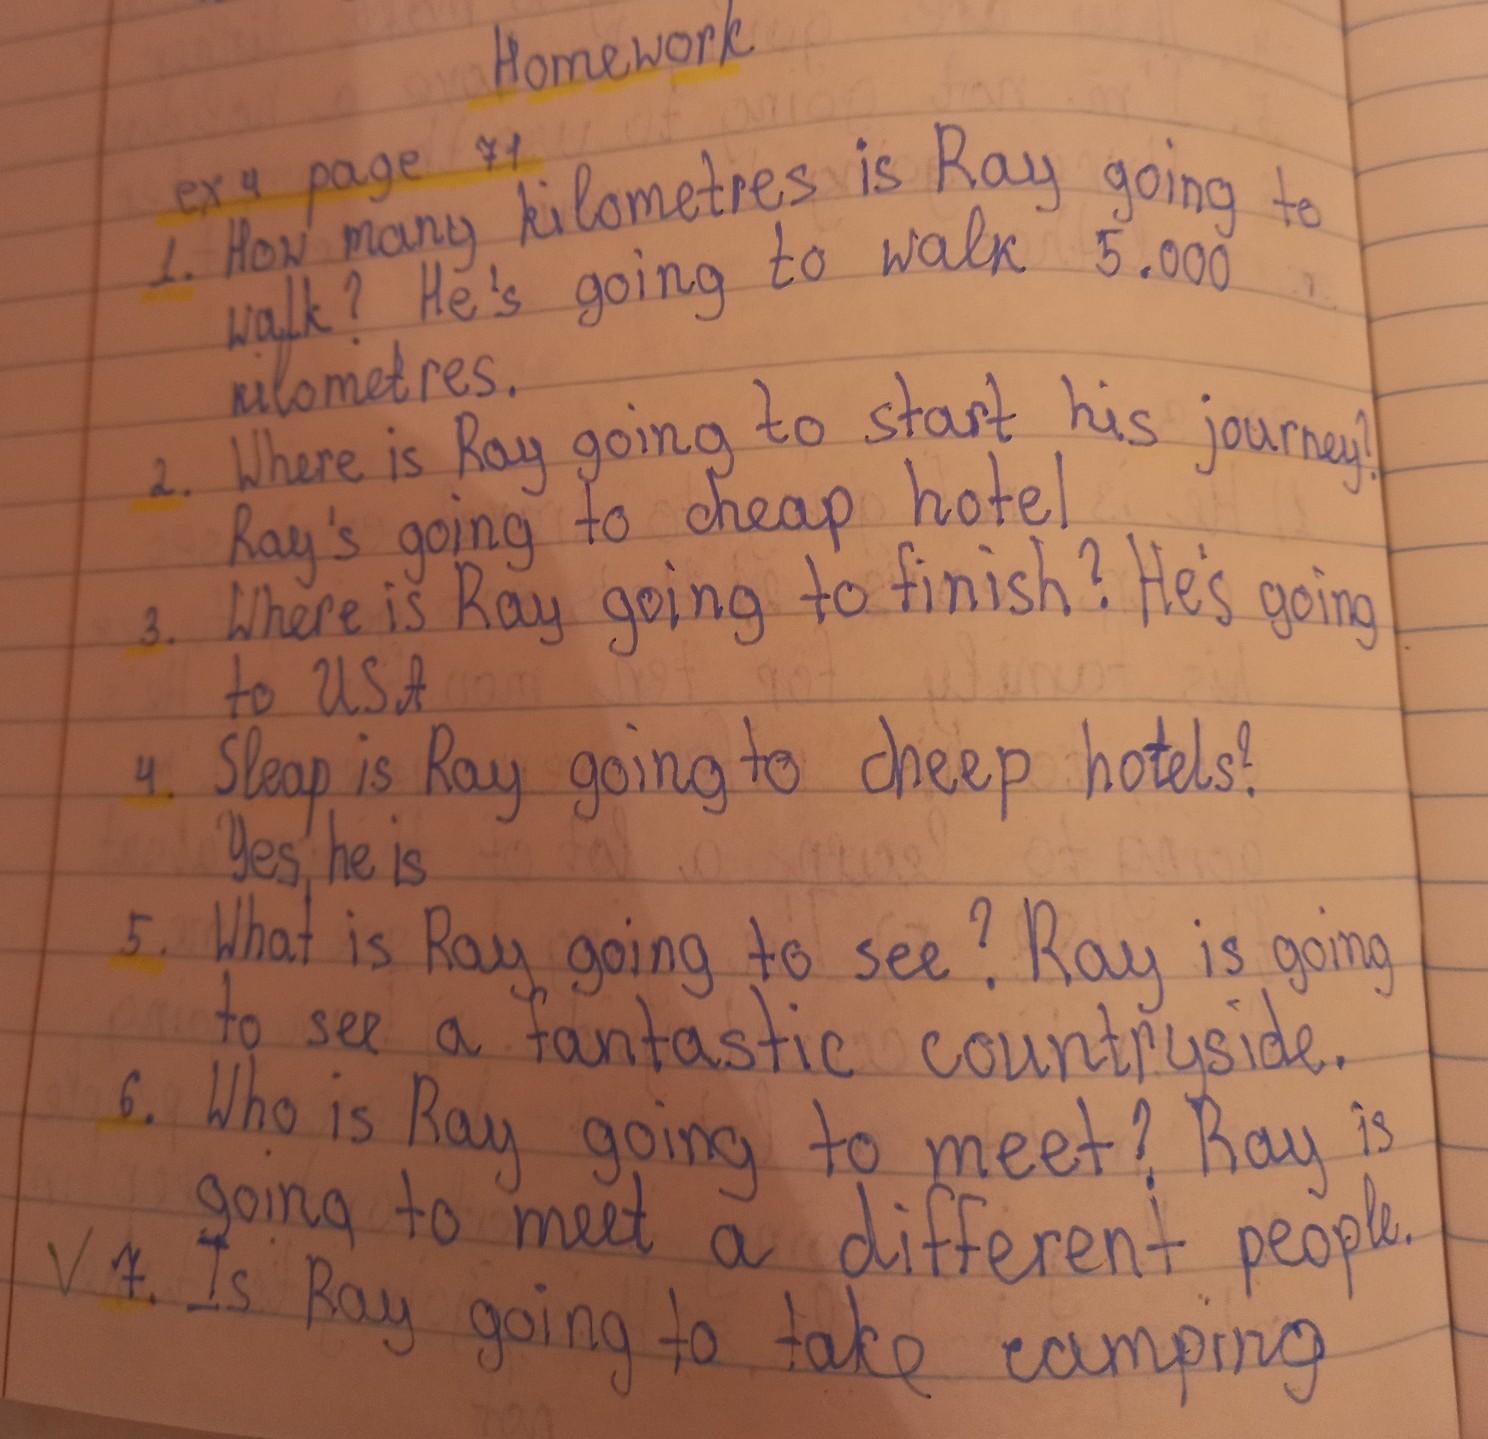 Homework
ex 4 page 71
1. How many kilometres is Ray going to
walk? He's going to walk 5.000
kilometres.
2. Where is Ray going to start his journey?
Ray's going to cheap hotel
3. Where is Ray going to finish? He's going
to USA
4. Sleap is Ray going to cheep hotels?
Yes, he is
5. What is Ray going to see? Ray is going
to see a fantastic countryside.
6. Who is Ray going to meet? Ray is
going to meet a different people.
7. Is Ray going to take camping